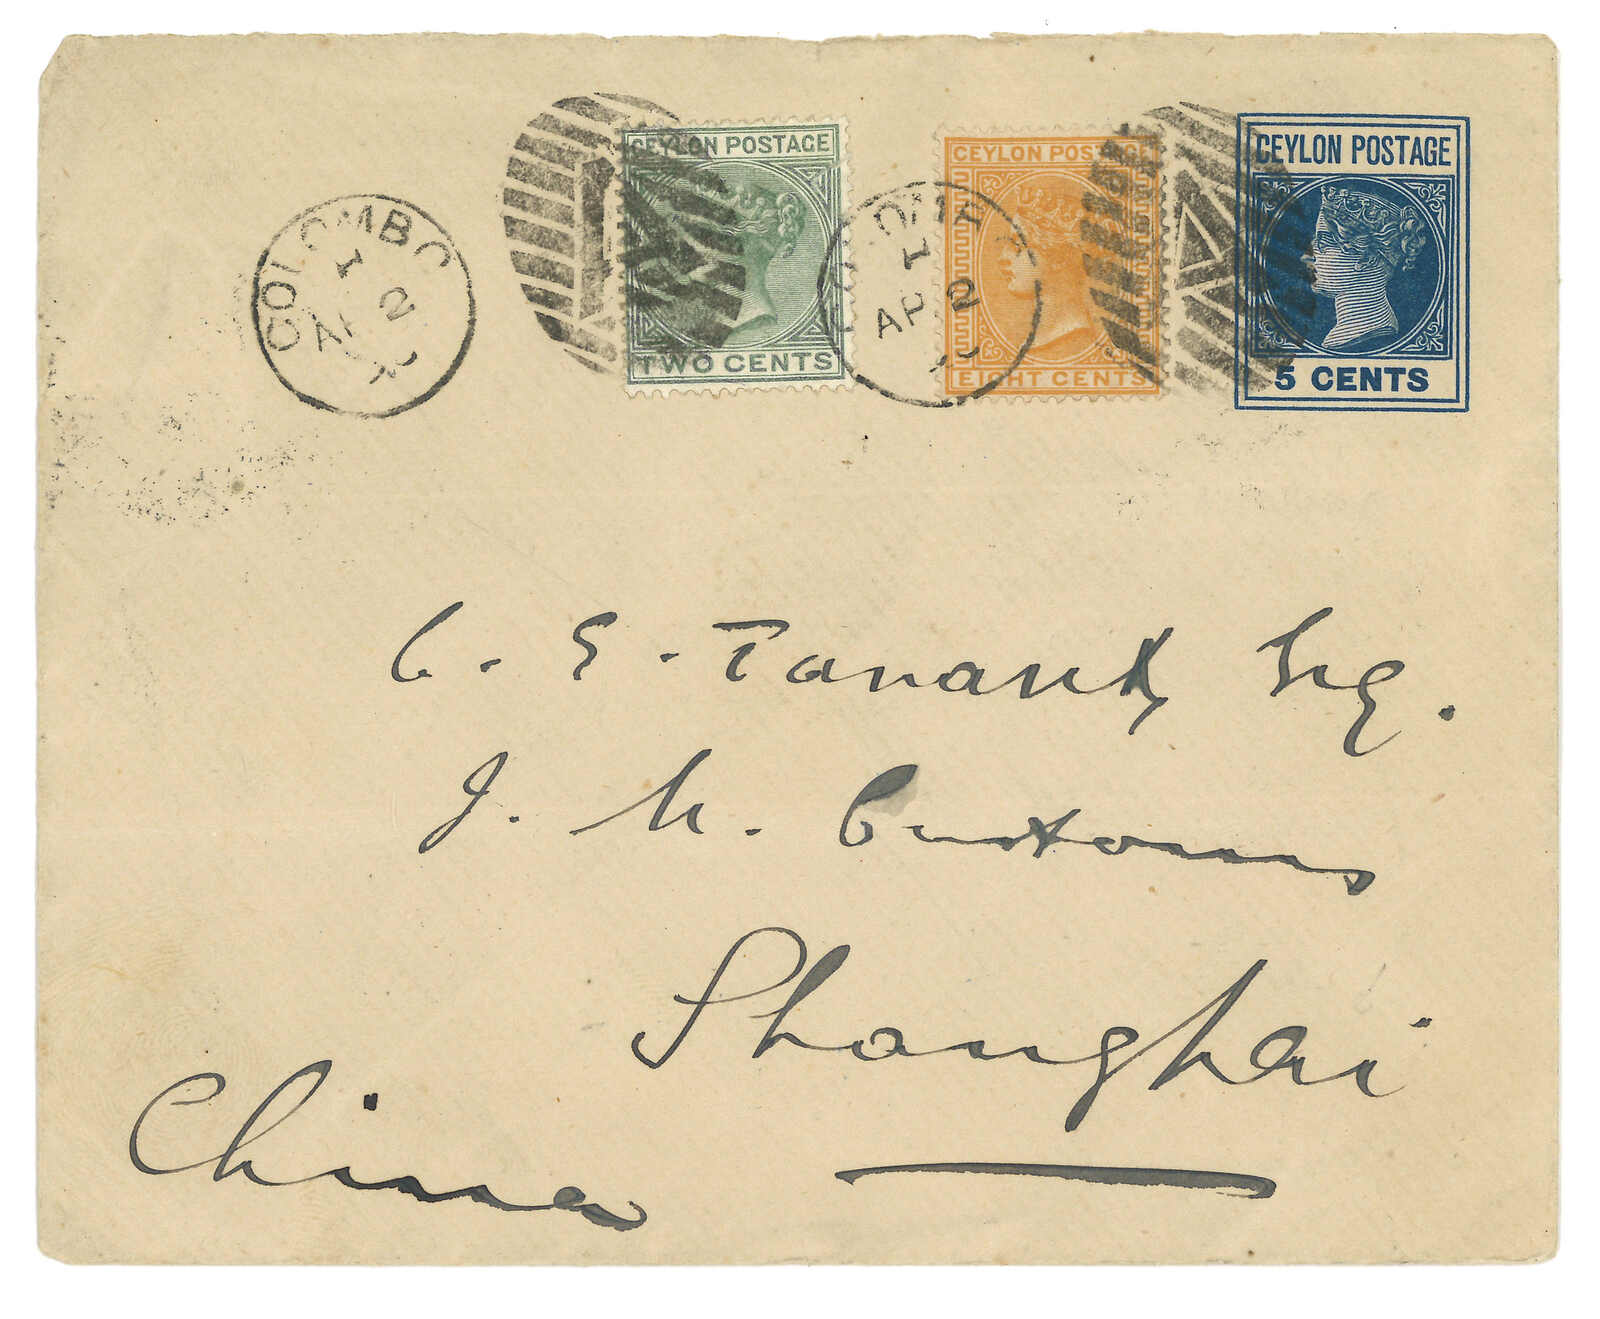 CEYLON POSTAGE
TWO CENTS
CEYLON POSTAGE
EIGHT CENTS
CEYLON POSTAGE
5 CENTS
COLOMBO
1
AP 2
COLOMBO
1
AP 2
C. E. Tanant Esq.
I. M. Customs
Shanghai
China